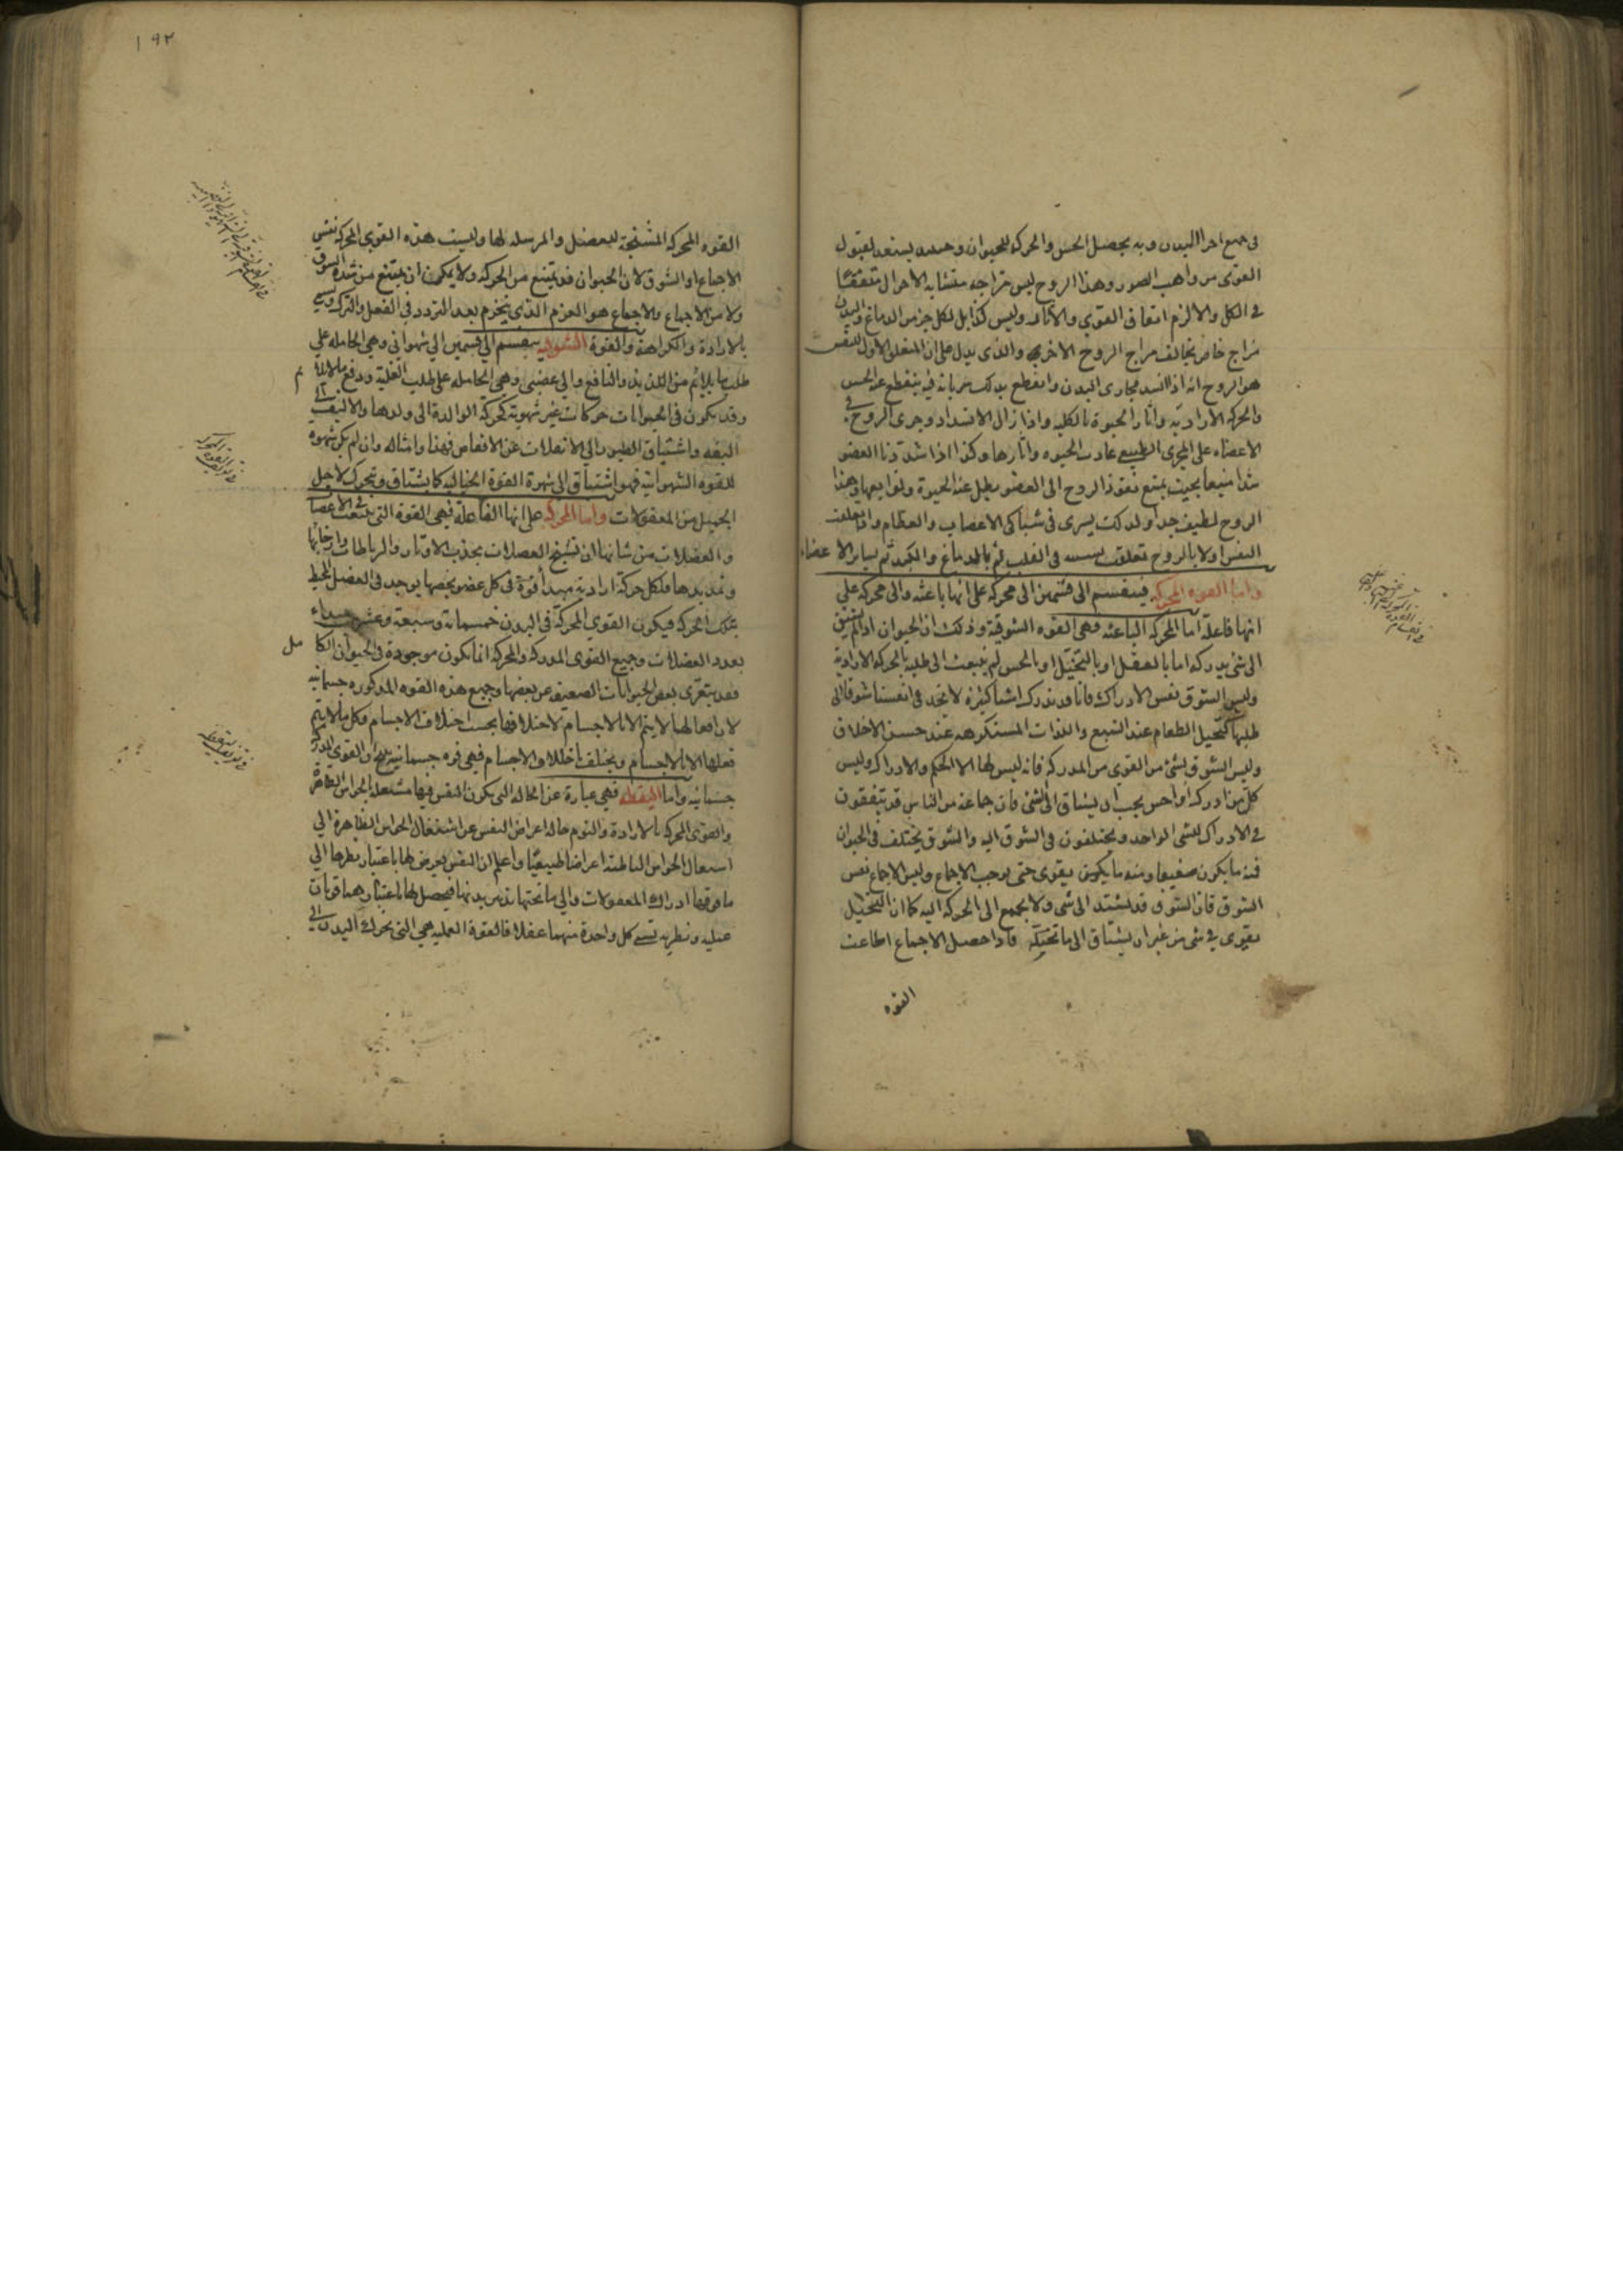 فى جميع اجزا البدن وبه يحصل الحس والحركه للحيوان وحينئذ يستعد لقبول
القوى من واهب الصور وهذا الروح ليس مزاجه متشابه الاحوال متفقا
فى الكل والا لزم اتفاق القوى والآثار وليس كذا بل لكل جزء من الدماغ والبدن
مزاج خاص يخالف مزاج الروح الاخرى والذى يدل على ان المتعلق الاول للنفس
هو الروح انه اذا انسد مجارى البدن وانقطع بذلك سريانه فيه ينقطع عنه الحس
والحركه الاراديه وآثار الحيوة بالكليه واذا زال الانسداد وجرى الروح فى
الاعضاء على المجرى الطبيعى عادت الحيوه وآثارها وكذا اذا شددنا العضو
شدا منيعا بحيث يمتنع نفوذ الروح الى العضو يبطل عنه الحيوة وتوابعها وهذا
الروح لطيف جدا ولذلك يسرى فى شباكى الاعصاب والعظام واذا تعلقت
النفس اولا بالروح تعلقت بسببه فى القلب ثم بالدماغ والكبد ثم بساير الاعضاء
واما القوه المحركه فينقسم الى قسمين الى محركه على انها باعثه والى محركه على
انها فاعلة اما المحركه الباعثه فهى القوه الشوقية وذلك ان الحيوان اذا لم يشتق
الى شئ يدركه اما بالعقل او بالتخيل او بالحس لم ينبعث الى طلبه بالحركه الارادية
وليس الشوق نفس الادراك فانا قد ندرك اشيا كثيره لا نجد فى انفسنا شوقا الى
طلبها كتخيل الطعام عند الشبع واللذات المستكرهه عند حسن الاخلاق
وليس الشوق بشئ من القوى من المدركه فانه ليس لها الا الحكم والادراك وليس
كل من ادرك او احس يجب ان يشتاق الى شئ فان جماعة من الناس قد يتفقون
فى الادراك للشى الواحد ويختلفون فى الشوق اليه والشوق يختلف فى الحيوان
فمنه ما يكون ضعيفا ومنه ما يكون يقوى حتى يوجب الاجماع وليس الاجماع نفس
الشوق فان الشوق قد يشتد الى شى ولا يجمع الى الحركه اليه كما ان التخيل
يقوى فى شى من غير ان يشتاق الى ما تخيله فاذا حصل الاجماع اطاعت
القوه
١٩٢
القوه المحركه المشنجة للعضل والمرسله لها وليست هذه القوى المحركه نفس
الاجماع او الشوق لان الحيوان قد يمتنع من الحركه ولا يمكن ان يمتنع من شدة الشوق
ولا من الاجماع والاجماع هو العزم الذى ينجزم بعد التردد فى الفعل والترك ويسمى
بالارادة والكراهة والقوة الشوقيه ينقسم الى قسمين الى شهوانى وهى الحامله على
طلب ما يلائم من اللذيذ والنافع والى غضبى وهى الحامله على طلب الغلبة ودفع ما لا يلائم
وقد يكون فى الحيوانات حركات غير شهويه كحركة الوالدة الى ولدها والاليف الى
اليفه واشتياق الطيور الى الانفلات عن الاقفاص فهذا وامثاله وان لم يكن شهوه
للقوه الشهوانيه فهو اشتياق الى شهرة القوة الخياليه كما يشتاق ويتحرك لاجل
الجميل من المعقولات واما المحركه على انها الفاعلة فهى القوة التى تنبعث فى الاعصاب
والعضلات من شانها ان تشنج العضلات بجذب الاوتار والرباطات وارخائها
وتمديدها ولكل حركة اراديه مبدأ قوة فى كل عضو يخصها يوجد فى العضل المحيط
بتلك الحركه فيكون القوى المحركة فى البدن خمسمائة وسبعة وعشرون مبداء
بعدد العضلات وجميع القوى المدركه والمحركه انما يكون موجودة فى الحيوان الكامل
فقد يتعرى بعض الحيوانات الضعيفه عن بعضها وجميع هذه القوه المذكوره جسمانيه
لان افعالها لا يتم الا بالاجسام لاختلافها بحسب اختلاف الاجسام وكل ما لا يتم
فعلها الا بالاجسام ويختلف باختلاف الاجسام فهى قوه جسمانيه والقوى المدركه
جسمانيه واما اليقظه فهى عبارة عن الحاله التى يكون النفس فيها مستعمله الحواس الظاهرة
والقوى المحركه بالارادة والنوم حاله اعراض النفس عن اشتغال الحواس الظاهرة الى
استعمال الحواس الباطنه اعراضا طبيعيا واعلم ان النفس يعرض لها باعتبار نظرها الى
ما فوقها ادراك المعقولات والى ما تحتها تدبير بدنها فيحصل لها باعتبارهما قوتان
عمليه ونظريه تسمى كل واحدة منهما عقلا فالقوة العمليه هى التى يحرك البدن الى